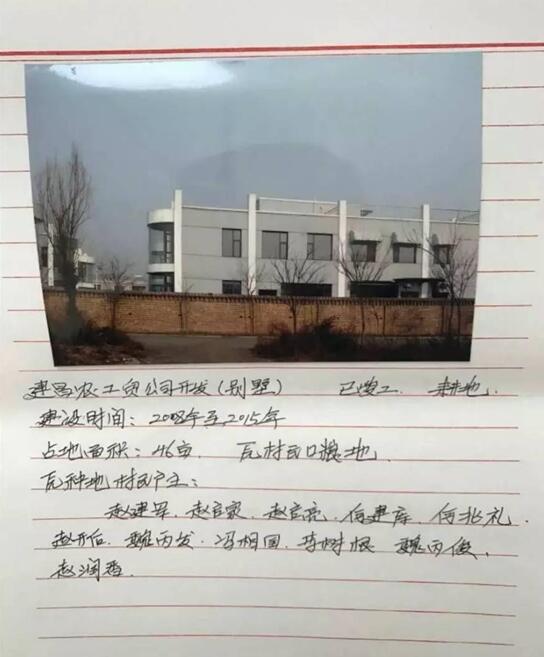 建昌农工贸公司开发(别墅) 已竣工. 耕地.
建设时间: 2008年至2015年
占地面积: 46亩. 瓦村民口粮地.
瓦种地村民户主:
赵建军. 赵官家. 赵官亮. 何建库. 何兆礼.
赵开后. 魏丙发. 冯相国. 李树根. 魏丙俊.
赵润香.